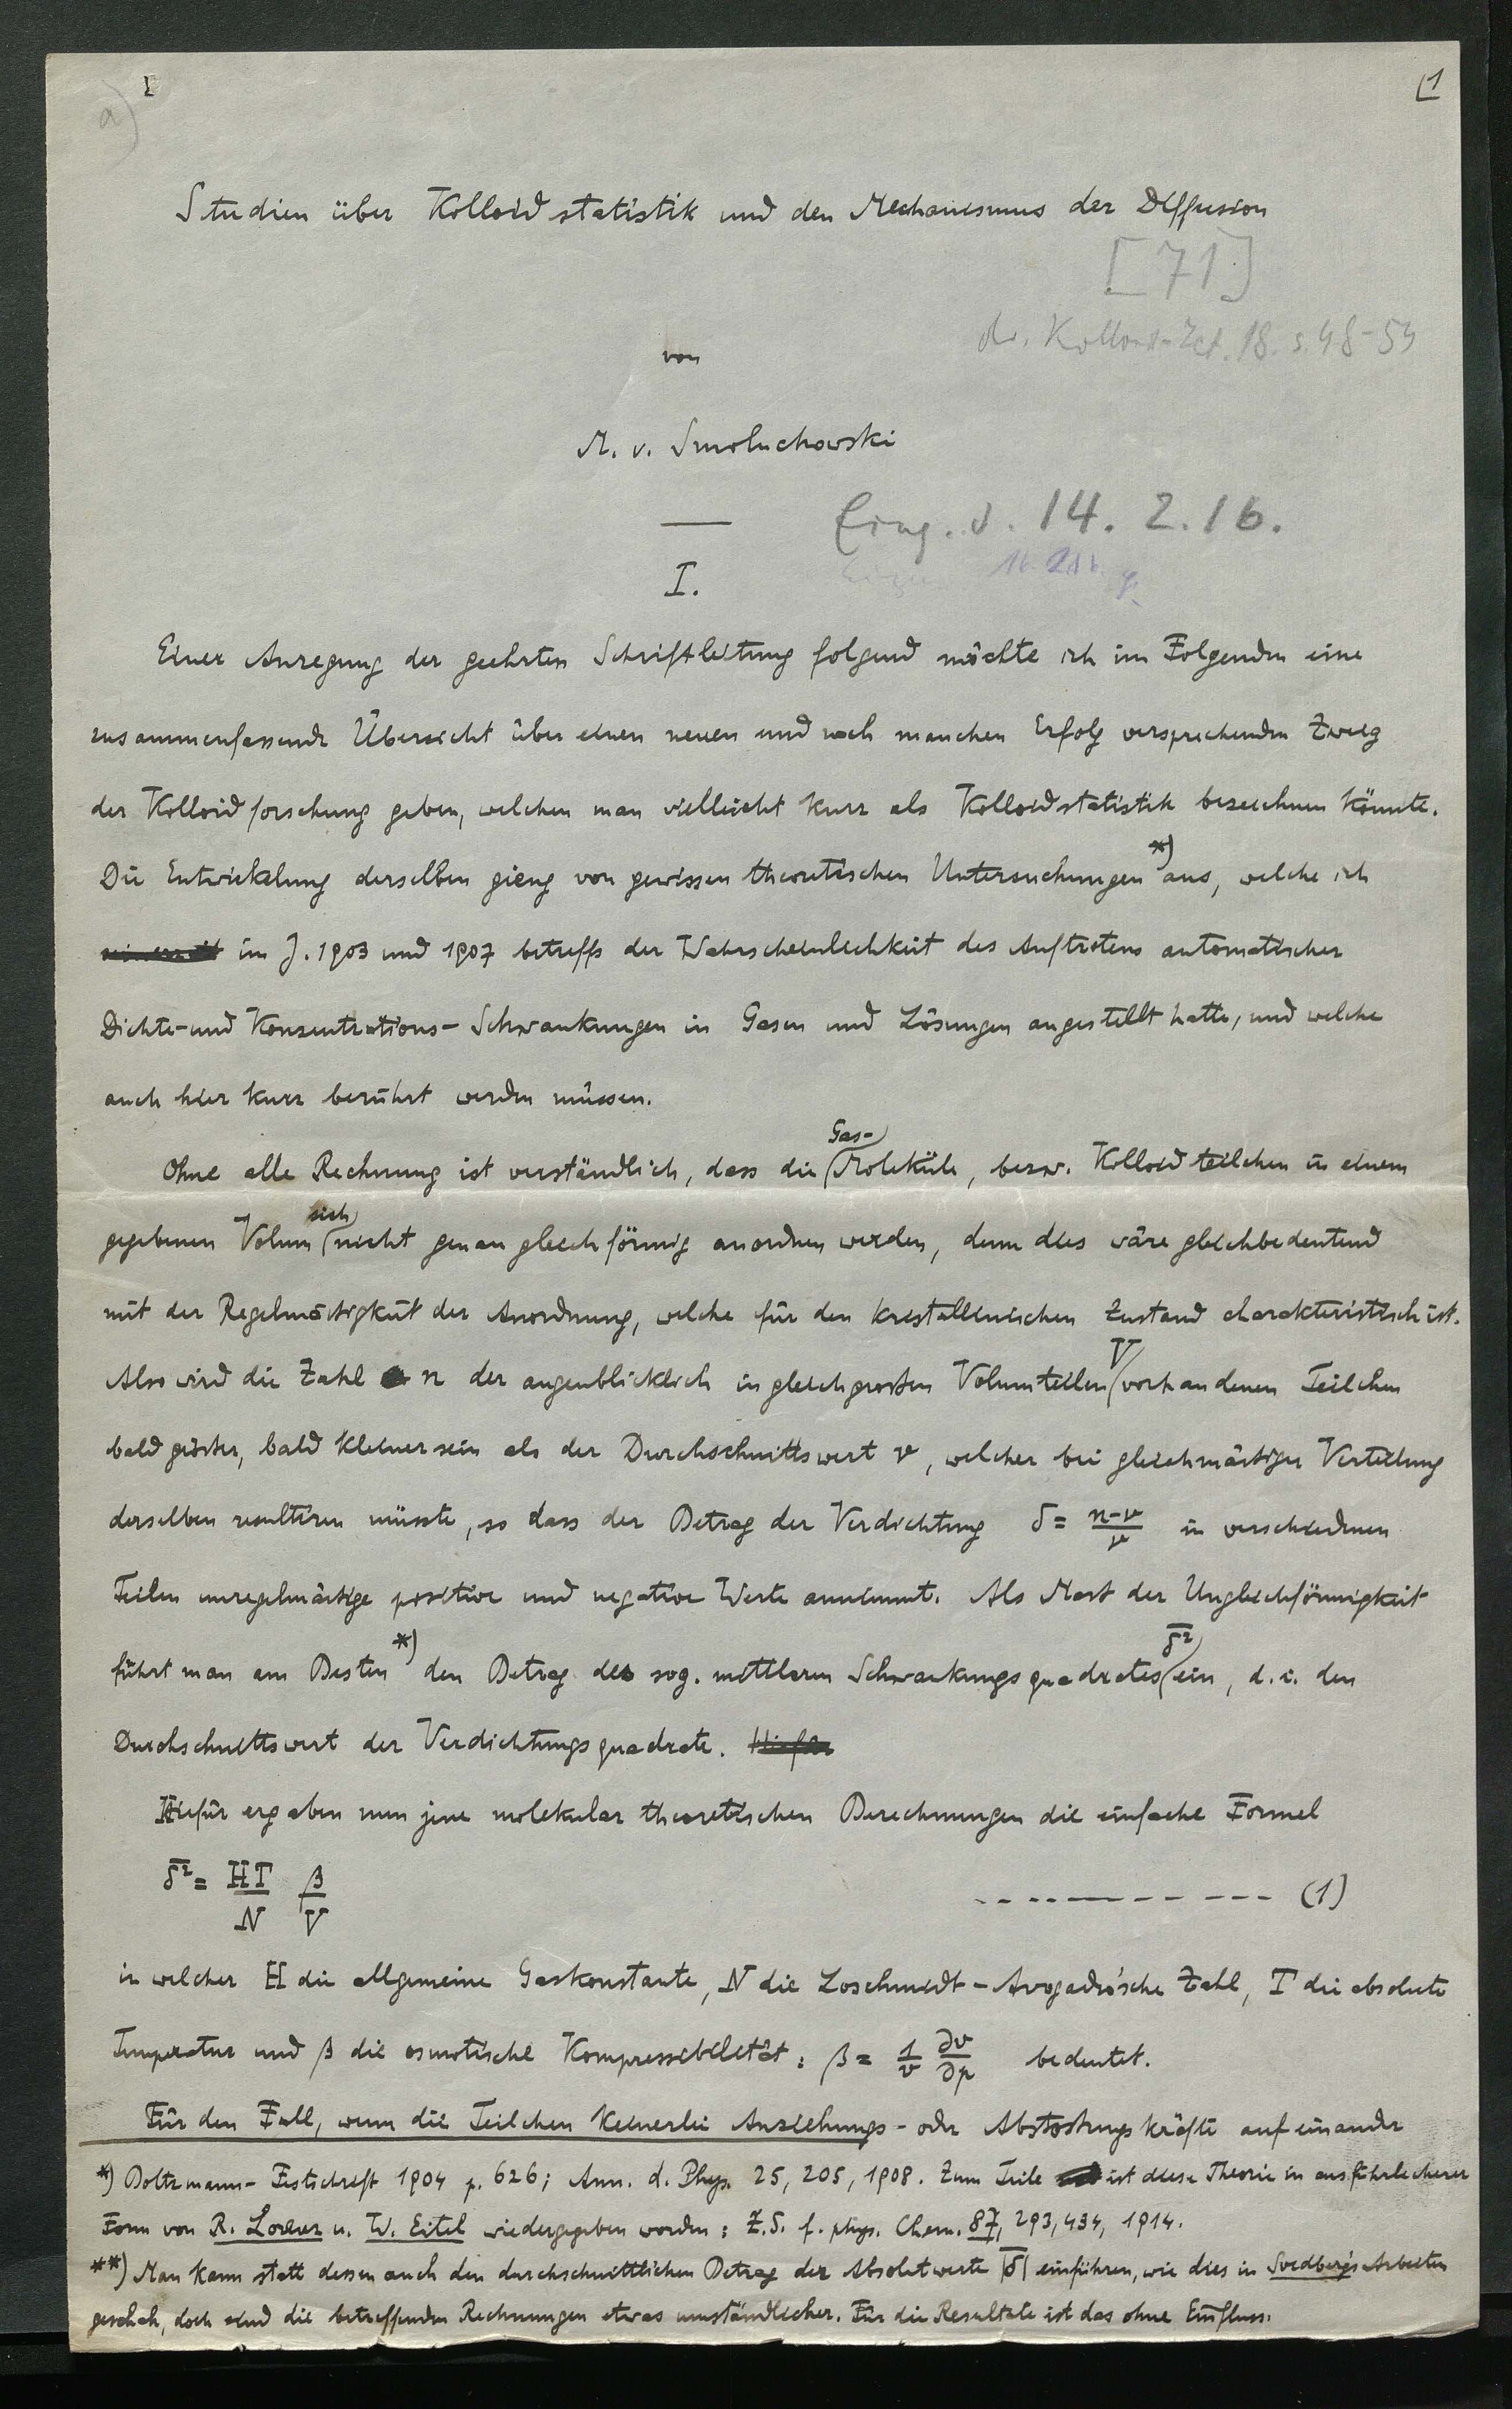 a)
1
Studien über Kolloidstatistik und den Mechanismus der Diffusion
[71]
dr. Kolloid-Zct. 18. s. 48-54
von
M. v. Smoluchowski
Eing. d. 14. 2. 16.
I.
Einer Anregung der geehrten Schriftleitung folgend möchte ich im Folgenden eine
zusammenfassende Übersicht über einen neuen und noch manchen Erfolg versprechenden Zweig
der Kolloidforschung geben, welchen man vielleicht kurz als Kolloidstatistik bezeichnen könnte.
Die Entwickelung derselben gieng von gewissen theoretischen Untersuchungen *) aus, welche ich
im J. 1903 und 1907 betreffs der Wahrscheinlichkeit des Auftretens automatischer
Dichte- und Konzentrations-Schwankungen in Gasen und Lösungen angestellt hatte, und welche
auch hier kurz berührt werden müssen.
Ohne alle Rechnung ist verständlich, dass die Gas-Moleküle, bezw. Kolloidteilchen in einem
gegebenen Volum sich nicht genau gleichförmig anordnen werden, denn dies wäre gleichbedeutend
mit der Regelmäßigkeit der Anordnung, welche für den kristallinischen Zustand charakteristisch ist.
Also wird die Zahl n der augenblicklich in gleichgroßen Volumteilen V vorhandenen Teilchen
bald größer, bald kleiner sein als der Durchschnittswert ν, welcher bei gleichmäßiger Verteilung
derselben resultiren müsste, so dass der Betrag der Verdichtung δ = (n-ν)/ν in verschiedenen
Teilen unregelmäßige positive und negative Werte annimmt. Als Mass der Ungleichförmigkeit
führt man am Besten *) den Betrag des sog. mittleren Schwankungsquadrates δ̅² ein, d. i. den
Durchschnittswert der Verdichtungsquadrate.
Hiefür ergaben nun jene molekulartheoretischen Berechnungen die einfache Formel
δ̅² = HT/N β/V --------- (1)
in welcher H die allgemeine Gaskonstante, N die Loschmidt-Avogadro'sche Zahl, T die absolute
Temperatur und β die osmotische Kompressibilität: β = 1/v ∂v/∂p bedeutet.
Für den Fall, wenn die Teilchen keinerlei Anziehungs- oder Abstoßungskräfte auf einander
*) Boltzmann-Festschrift 1904 p. 626; Ann. d. Phys. 25, 205, 1908. Zum Teile ist diese Theorie in ausführlicherer
Form von R. Lorenz u. W. Eitel wiedergegeben worden: Z.S. f. phys. Chem. 87, 293, 434, 1914.
**) Man kann statt dessen auch den durchschnittlichen Betrag der Absolutwerte |δ̅| einführen, wie dies in Svedberg's Arbeiten
geschah, doch sind die betreffenden Rechnungen etwas umständlicher. Für die Resultate ist das ohne Einfluss.